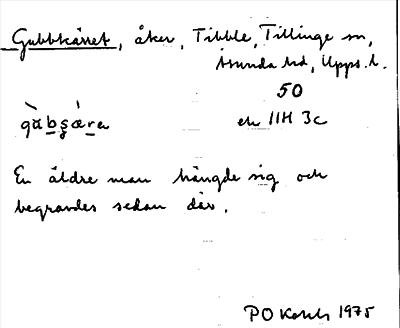 Gubbkärret, åker, Tibble, Tillinge sn,
Åsunda hd, Upps. l.
50
ek 11H 3c
En äldre man hängde sig och
begravdes sedan där.
PO 1975